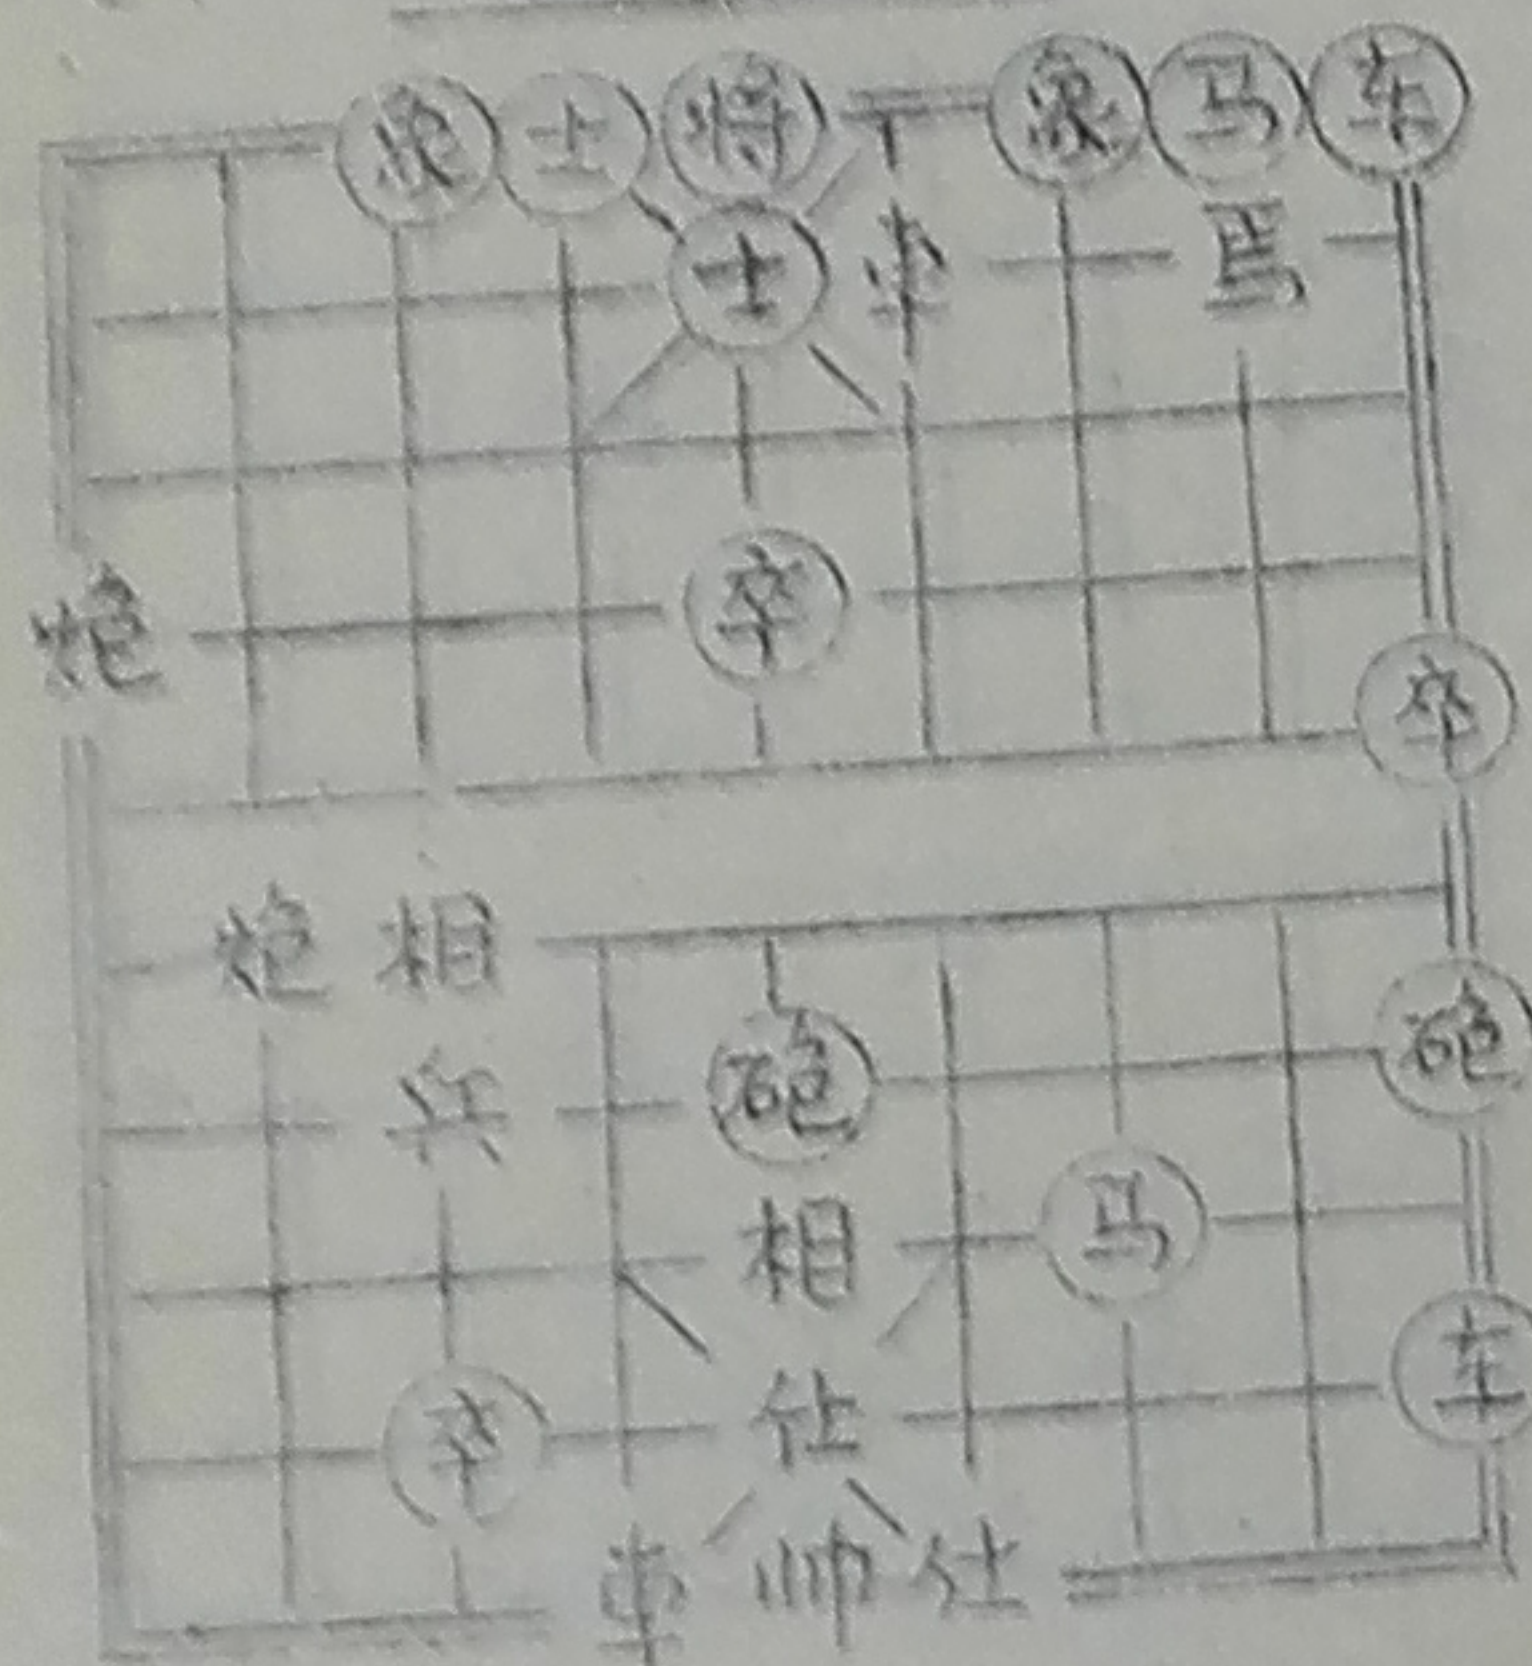 象 士 将 象 马 车
士 車 馬
炮 卒
卒
炮 相
兵 砲 砲
相 马
卒 仕 车
車 帅 仕